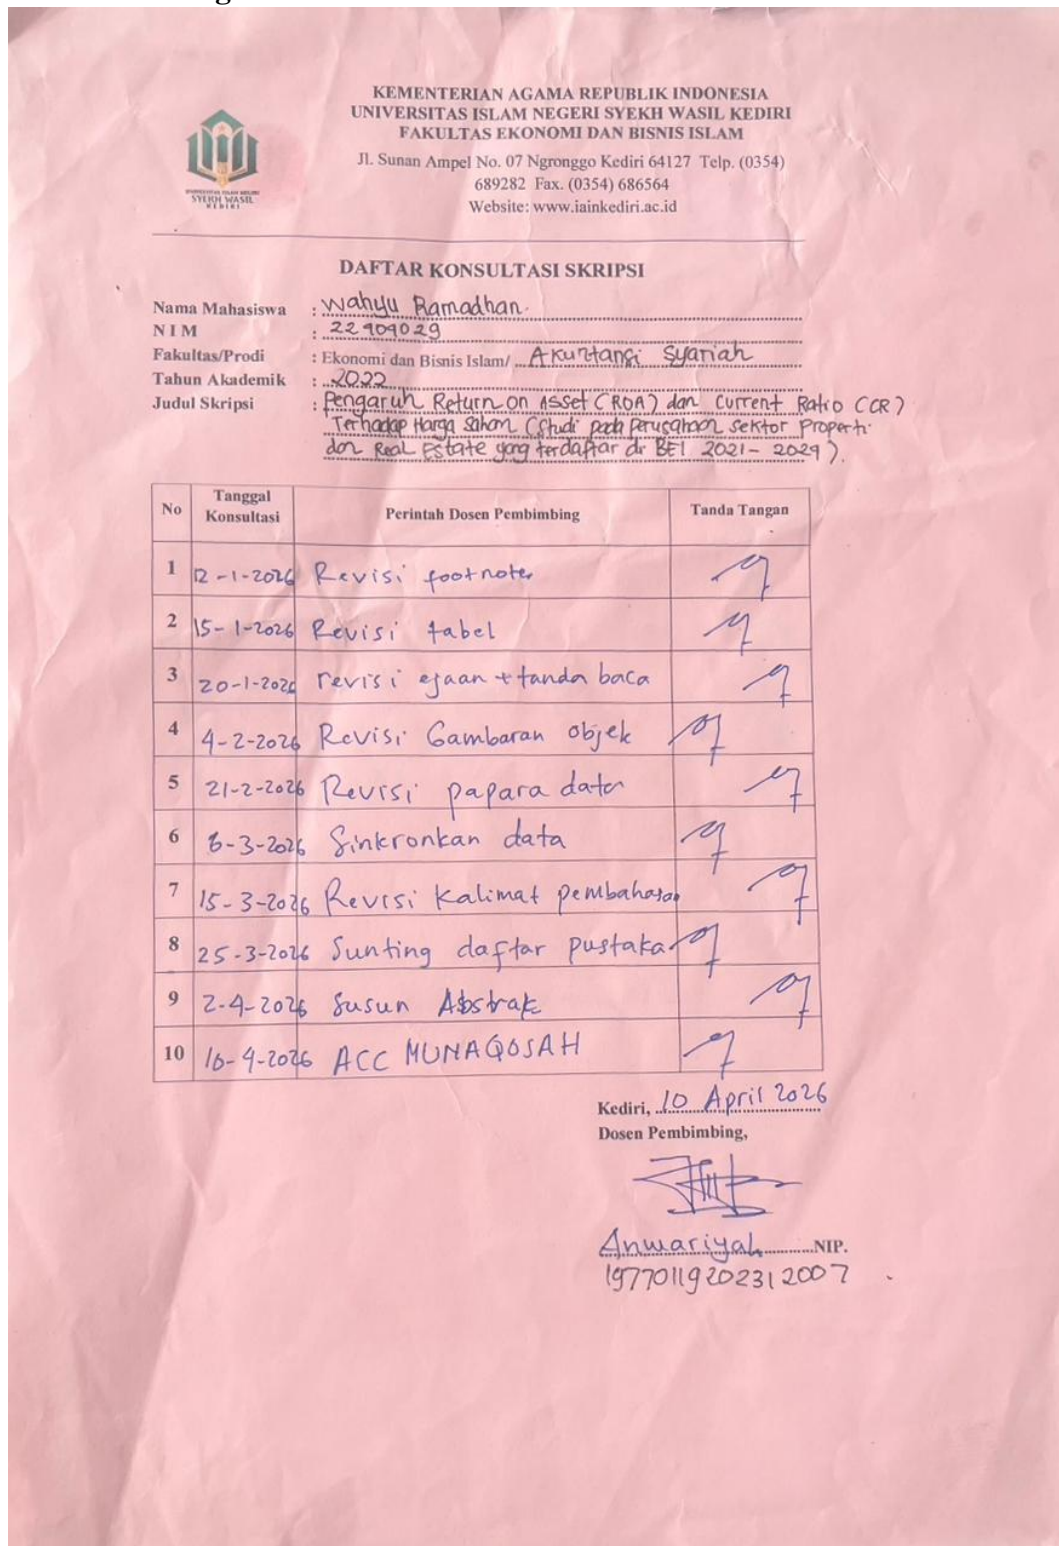 KEMENTERIAN AGAMA REPUBLIK INDONESIA
UNIVERSITAS ISLAM NEGERI SYEKH WASIL KEDIRI
FAKULTAS EKONOMI DAN BISNIS ISLAM
Jl. Sunan Ampel No. 07 Ngronggo Kediri 64127 Telp. (0354)
689282 Fax. (0354) 686564
Website: www.iainkediri.ac.id
UNIVERSITAS ISLAM NEGERI
SYEKH WASIL
KEDIRI
DAFTAR KONSULTASI SKRIPSI
Nama Mahasiswa : Wahyu Ramadhan
N I M : 22909029
Fakultas/Prodi : Ekonomi dan Bisnis Islam/ Akuntansi Syariah
Tahun Akademik : 2022
Judul Skripsi : Pengaruh Return on Asset (ROA) dan Current Ratio (CR)
Terhadap Harga Saham (Studi pada perusahaan sektor properti
dan Real Estate yang terdaftar di BEI 2021-2029).
No Tanggal Konsultasi Perintah Dosen Pembimbing Tanda Tangan
1 12-1-2026 Revisi footnote
2 15-1-2026 Revisi tabel
3 20-1-2026 revisi ejaan + tanda baca
4 4-2-2026 Revisi Gambaran objek
5 21-2-2026 Revisi papara data
6 6-3-2026 Sinkronkan data
7 15-3-2026 Revisi Kalimat pembahasan
8 25-3-2026 Sunting daftar pustaka
9 2-4-2026 Susun Abstrak
10 10-4-2026 ACC MUNAQOSAH
Kediri, 10 April 2026
Dosen Pembimbing,
Anwariyah NIP.
19770119202312007